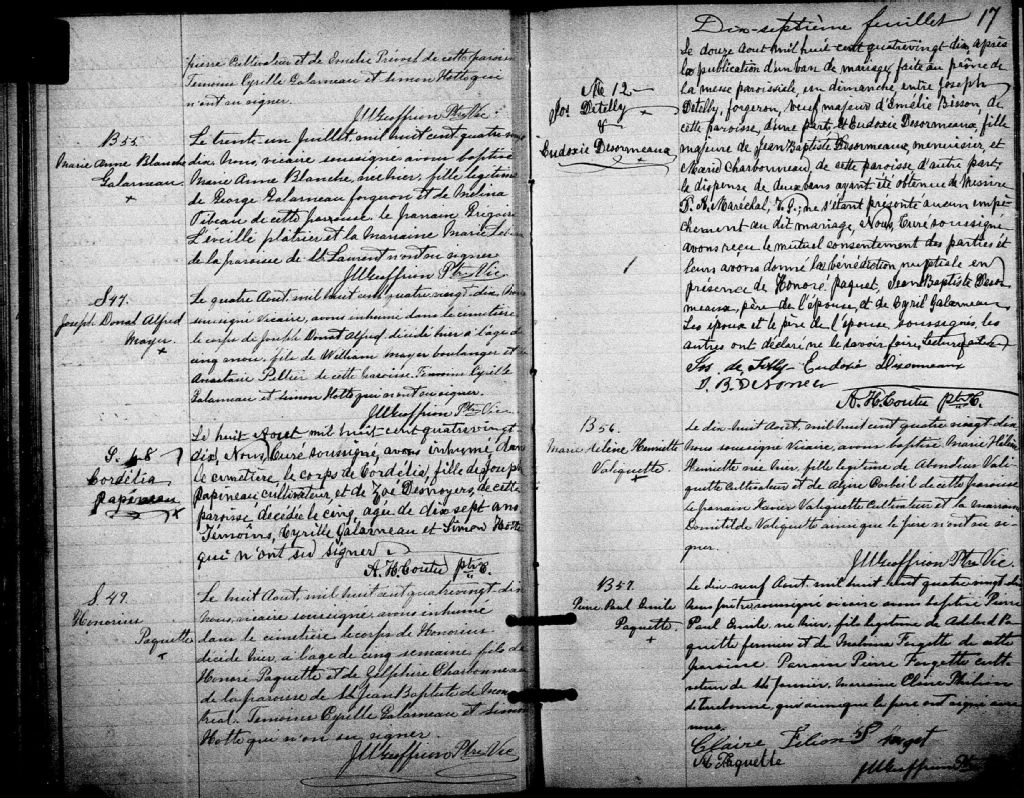 pierre Cultivateur et de Emelie Prévost de cette paroisse
Temoins Cyrille Galarneau et Simon Hotte qui
n'ont su signer.
JU Geoffrion Ptre Vic.
B 55.
Marie Anne Blanche
Galarneau.
+
Le trente-un Juillet, mil huit cent quatre vingt
dix, Nous, vicaire soussigné avons baptisé
Marie Anne Blanche, née hier, fille legitime
de George Galarneau forgeron et de Melina
de cette paroisse. le parrain Grégoire
Léveillé plâtrier et la Marraine Marie
de la paroisse de St Laurent n'ont su signer
JU Geoffrion Ptre Vic
S 47.
Joseph Donat Alfred
Mayer
+
Le quatre Aout, mil huit cent quatre vingt dix, Nous
soussigné Vicaire, avons inhumé dans le cimetière
le corps de Joseph Donat Alfred décédé hier à l'âge de
cinq mois, fils de William Mayer boulanger et
Anastasie Pellier de cette paroisse. Temoins Cyrille
Galarneau et Simon Hotte qui n'ont su signer.
JU Geoffrion Ptre Vic
S. 48
Cordélia
Papineau
+
Le huit Aout mil huit cent quatrevingt-
dix, Nous, Curé soussigné, avons inhumé, dans
le cimetière, le corps de Cordélia, fille de Joseph
Papineau cultivateur, et de Zoé Desnoyers, de cette
paroisse, décédée le cinq, agée de dix sept ans
Témoins, Cyrille Galarneau et Simon Hotte
qui n'ont su signer
A. H. Coutu ptre C.
S. 49.
Honorius
Paquette
+
Le huit Aout, mil huit cent quatrevingt dix
Nous, vicaire soussigné avons inhumé
dans le cimetière le corps de Honorius
décédé hier, à l'age de cinq semaines, fils de
Honoré Paquette et de Zelphire Charbonneau
de la paroisse de St Jean Baptiste de Mont
réal. Temoins Cyrille Galarneau et Simon
Hotte qui n'on su signer.
JU Geoffrion Ptre Vic
Dix-septième feuillet 17
No 12
Jos Detilly
&
Eudoxie Desormeaux
Le douze Aout mil huit cent quatrevingt dix, après
la publication d'un ban de mariage, faite au prône de
la messe paroissiale, un dimanche, entre Joseph
Detilly, forgeron, veuf majeur d'Emélie Bisson, de
cette paroisse, d'une part, et Eudoxie Desormeaux, fille
majeure de Jean Baptiste Desormeaux, menuisier, et
Marie Charbonneau, de cette paroisse d'autre part,
la dispense de deux bans ayant été obtenue de Messire
Maréchal, V. G.; ne s'étant présenté aucun empê-
chement au dit mariage, Nous, Curé soussigné
avons reçu le mutuel consentement des parties et
leurs avons donné la bénédiction nuptiale en
presence de Honoré Paquet, Jean Baptiste Desor
meaux, père de l'épouse, et de Cyril Galarneau.
Les époux et le père de l'épouse, soussignés, les
autres ont déclaré ne le savoir faire, Lecture faite
Jos. de Tilly Eudoxie Desormeaux
A. H. Coutu ptre C.
B 56.
Marie Hélène Henriette
Valiquette.
+
Le dix huit Aout, mil huit cent quatre vingt dix
Nous soussigné Vicaire, avons baptisé Marie Hélène
Henriette née hier, fille legitime de Vali-
quette Cultivateur et de Azire Corbeil de cette paroisse
le parrain Xavier Valiquette Cultivateur et la marraine
Domitilde Valiquette ainsi que le père n'ont su si
gner.
JU Geoffrion Ptre Vic.
B 57.
Pierre Paul Emile
Paquette.
+
Le dix neuf Aout, mil huit cent quatre vingt dix
Nous prêtre, soussigné vicaire avons baptisé Pierre
Paul Emile né hier, fils legitime de Adelard Pa
quette fermier et de Malvina Forgette de cette
paroisse. Parrain Pierre Forgette culti
vateur de St Janvier, marraine Claire Philion
de Terrebonne, qui ainsi que le père ont signé avec
nous.
Claire Filion P Forget
A Paquette
JU Geoffrion Ptre